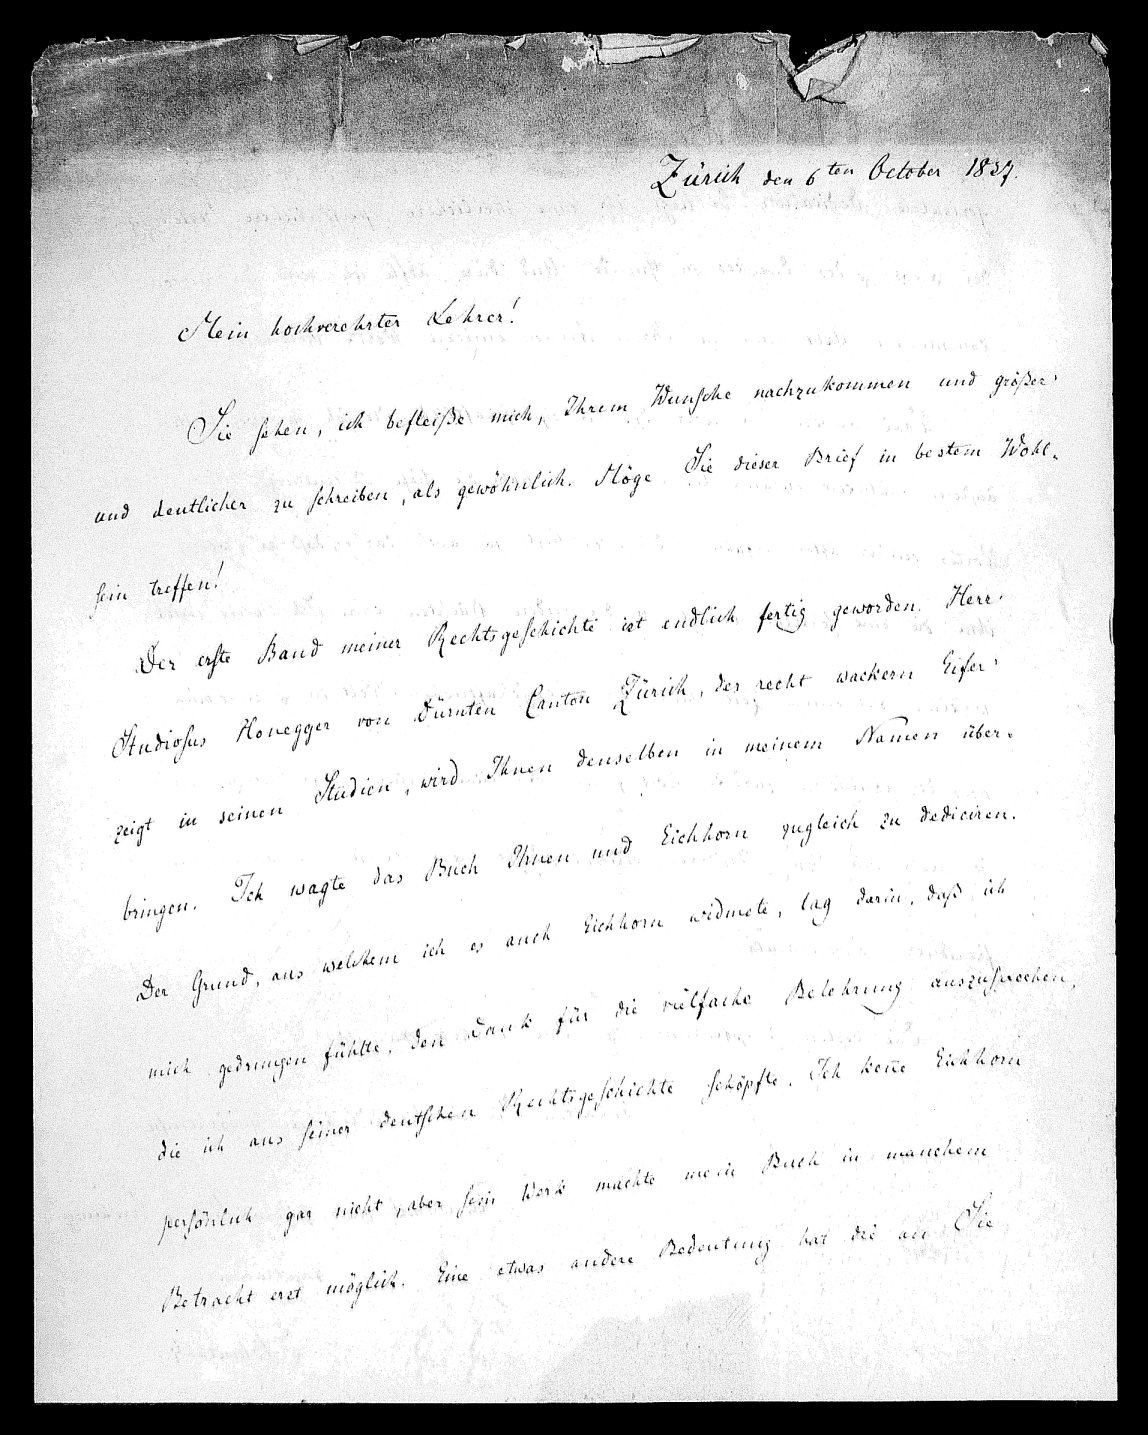 Zürich den 6ten October 1837.
Mein hochverehrter Lehrer!
Sie sehen, ich befleiße mich, Ihrem Wunsche nachzukommen und größer
und deutlicher zu schreiben, als gewöhnlich. Möge Sie dieser Brief in bestem Wohl-
sein treffen!
Der erste Band meiner Rechtsgeschichte ist endlich fertig geworden. Herr
Studiosus Honegger von Dürnten Canton Zürich, der recht wackern Eifer
zeigt in seinen Studien, wird Ihnen denselben in meinem Namen über-
bringen. Ich wagte das Buch Ihnen und Eichhorn zugleich zu dediciren.
Der Grund, aus welchem ich es auch Eichhorn widmete, lag darin, daß ich
mich gedrungen fühlte, den Dank für die vielfache Belehrung auszusprechen,
die ich aus seiner deutschen Rechtsgeschichte schöpfte. Ich ken̄e Eichhorn
persönlich gar nicht, aber sein Werk machte mein Buch in manchem
Betracht erst möglich. Eine etwas andere Bedeutung hat die an Sie